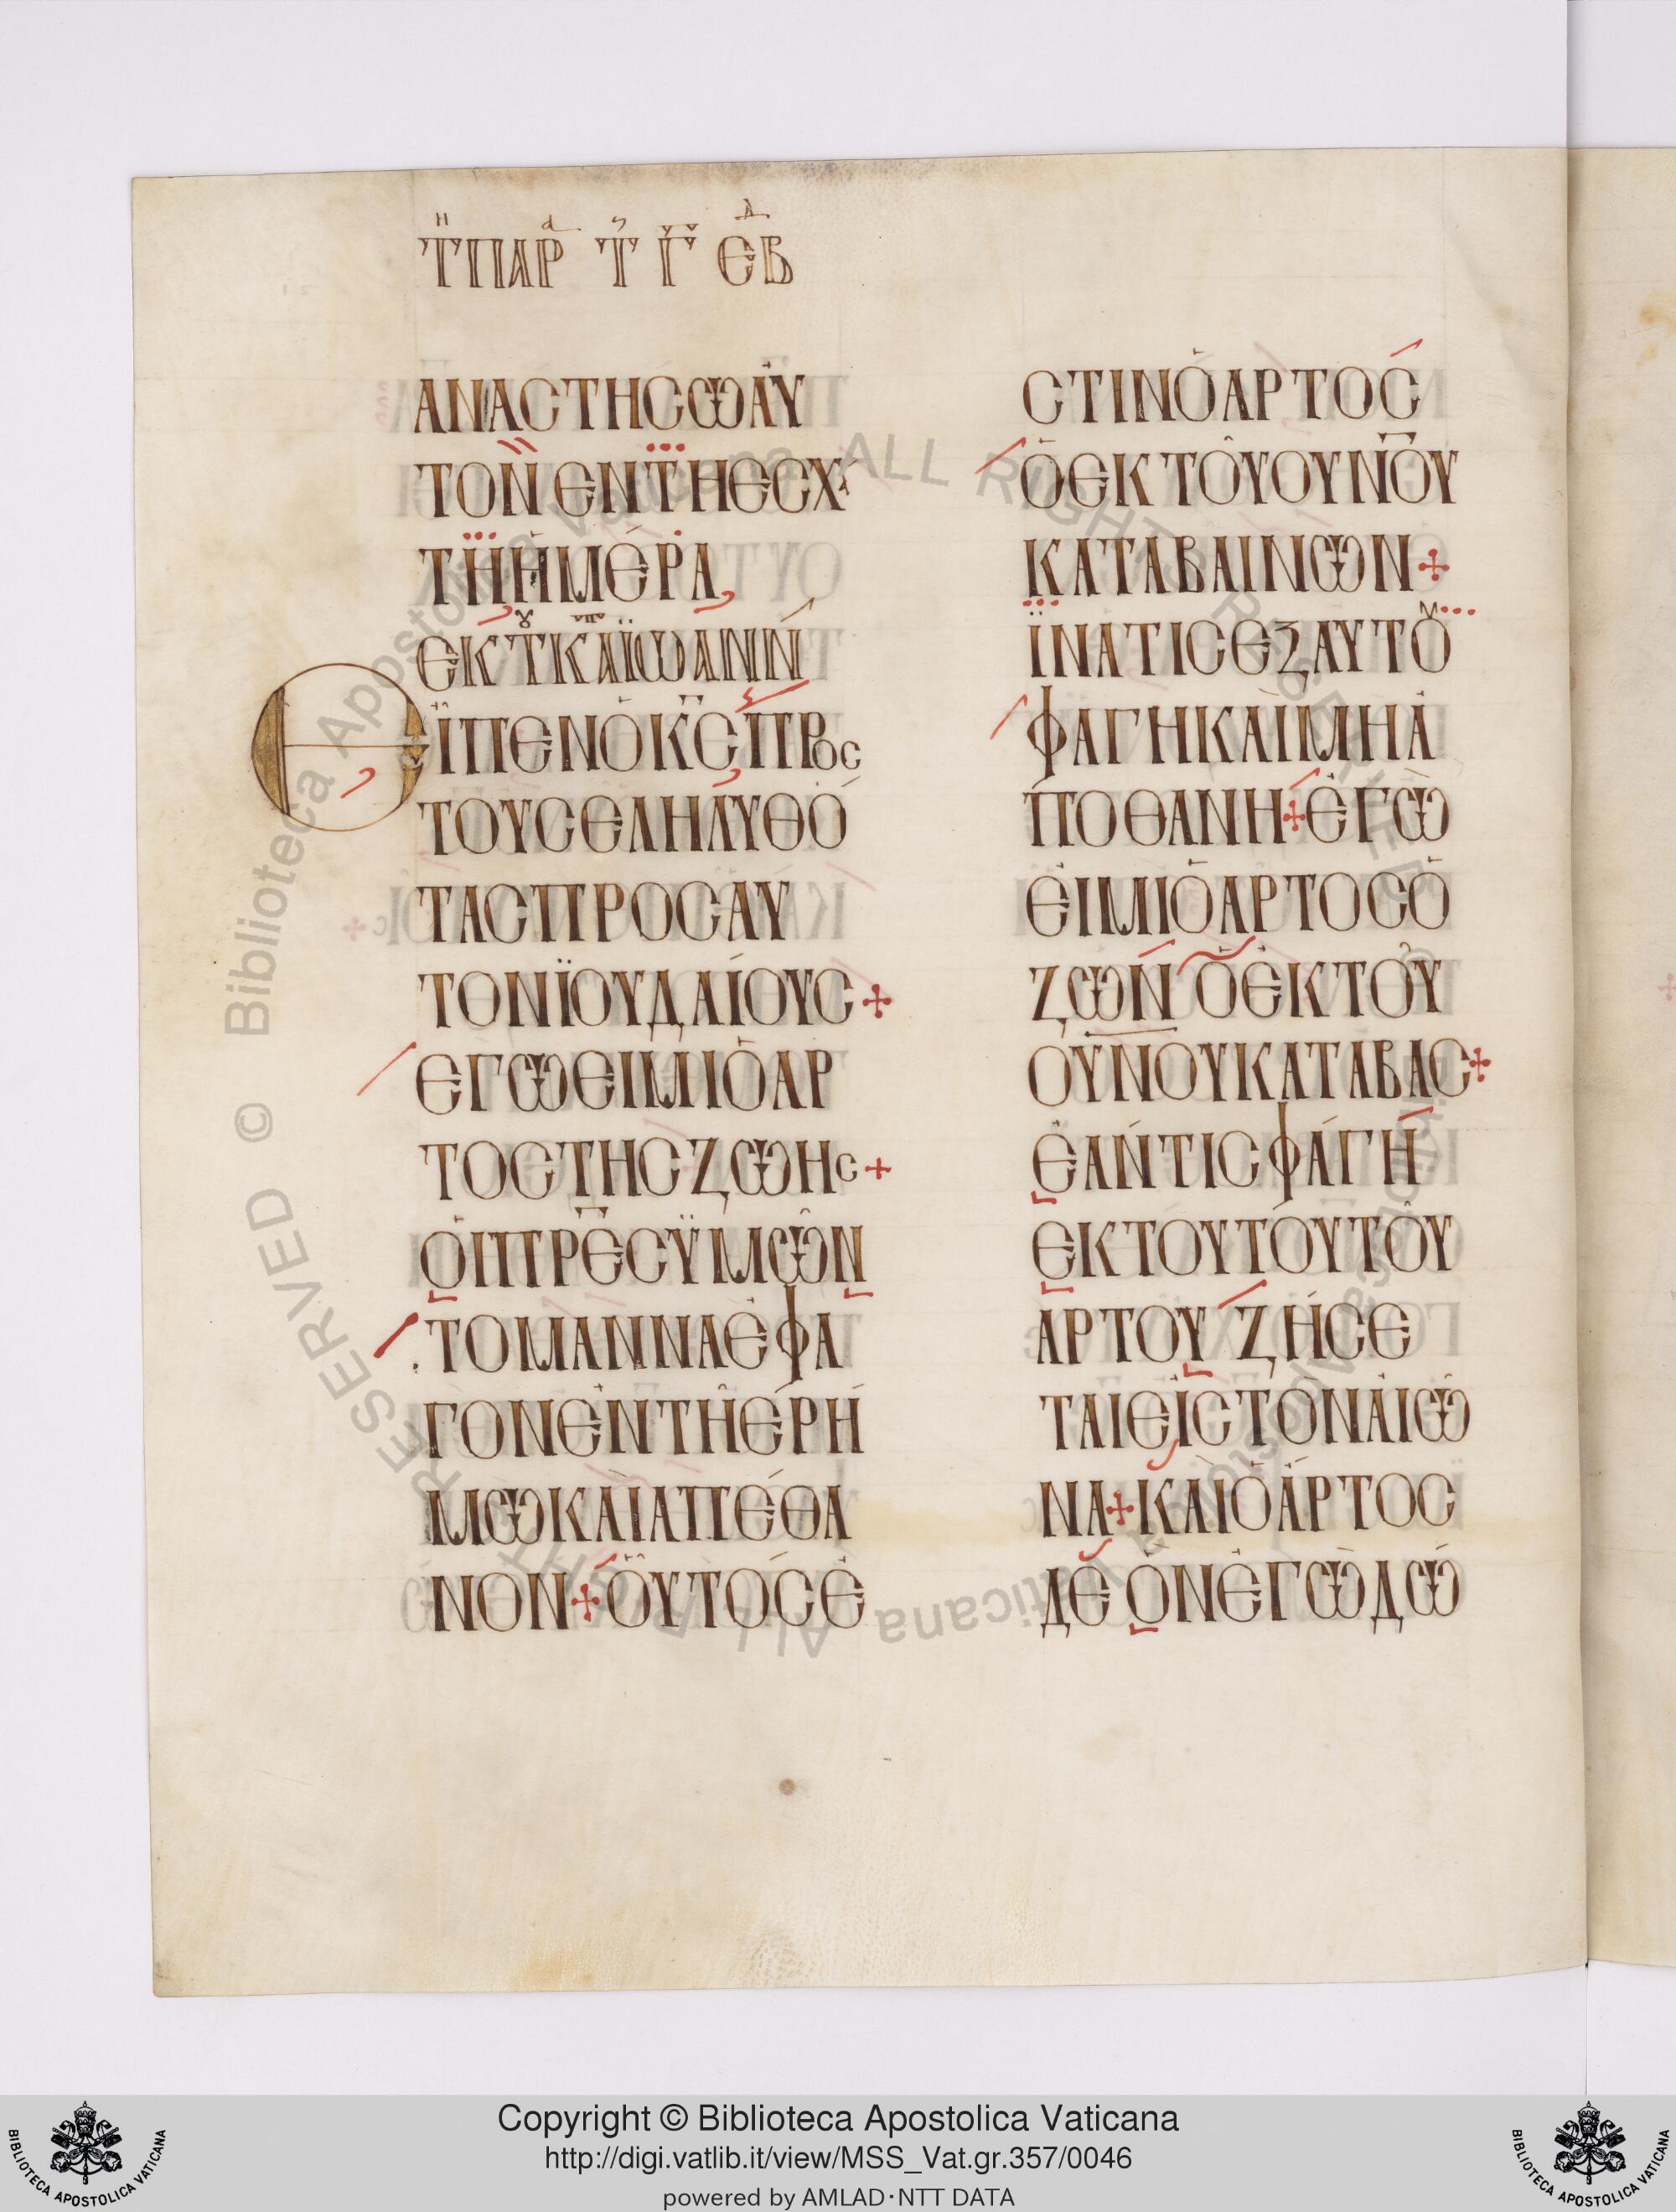 ΤΠΑΡ Τ Γ ΕΒΔ
ΑΝΑϹΤΗϹѠΑΥ
ΤΟΝ ΕΝΤΗΕϹΧ
ΤΗΗΜΕΡΑ
ΕΚΤΚΑΪѠΑΝΝ
ΕΙΠΕΝΟΚϹΠΡΟϹ
ΤΟΥϹΕΛΗΛΥΘΟ
ΤΑϹΠΡΟϹΑΥ
ΤΟΝΪΟΥΔΑΙΟΥϹ+
ΕΓѠΕΙΜΙΟΑΡ
ΤΟϹΤΗϹΖѠΗϹ+
ΟΙΠΡΕϹΫΜѠΝ
ΤΟΜΑΝΝΑΕΦΑ
ΓΟΝΕΝΤΗΕΡΗ
ΜѠΚΑΙΑΠΕΘΑ
ΝΟΝ+ΟΥΤΟϹΕ
ϹΤΙΝΟΑΡΤΟϹ
ΟΕΚΤΟΥΟΥΝΟΥ
ΚΑΤΑΒΑΙΝѠΝ+
ΪΝΑΤΙϹΕΞΑΥΤΟΥ
ΦΑΓΗΚΑΙΜΗΑ
ΠΟΘΑΝΗ+ΕΓѠ
ΕΙΜΙΟΑΡΤΟϹΟ
ΖѠΝ ΟΕΚΤΟΥ
ΟΥΝΟΥΚΑΤΑΒΑϹ+
ΕΑΝΤΙϹΦΑΓΗ
ΕΚΤΟΥΤΟΥΤΟΥ
ΑΡΤΟΥ ΖΗϹΕ
ΤΑΙΕΙϹΤΟΝΑΙѠ
ΝΑ+ΚΑΙΟΑΡΤΟϹ
ΔΕ ΟΝΕΓѠΔѠ
© Biblioteca Apostolica Vaticana ALL RIGHTS RESERVED
BIBLIOTECA APOSTOLICA VATICANA
Copyright © Biblioteca Apostolica Vaticana
http://digi.vatlib.it/view/MSS_Vat.gr.357/0046
powered by AMLAD·NTT DATA
BIBLIOTECA APOSTOLICA VATICANA